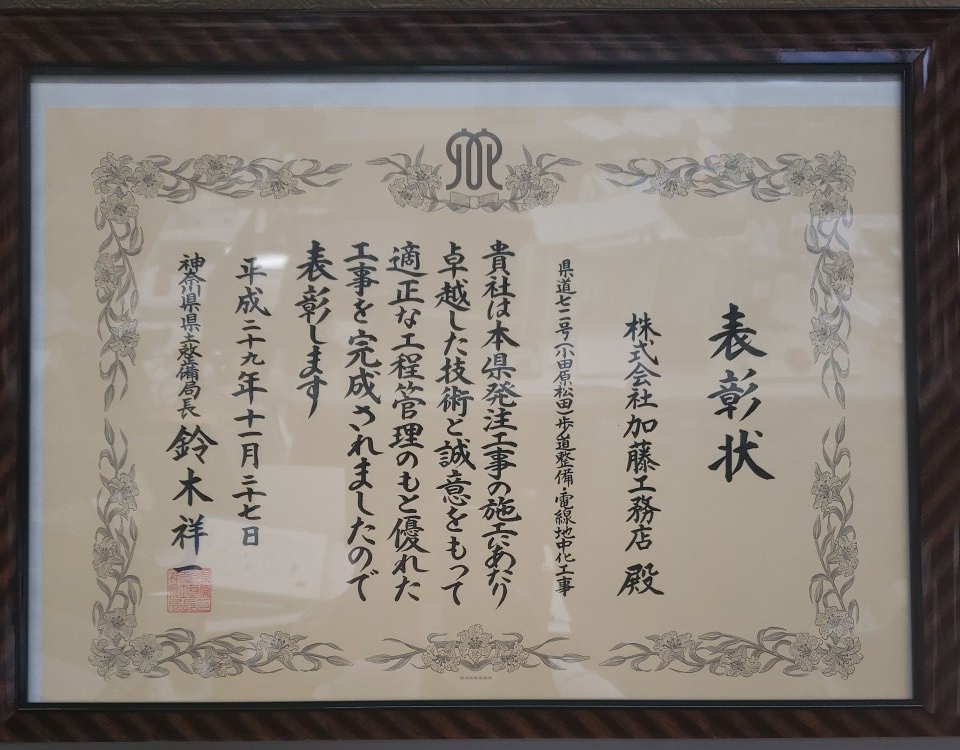 表彰状
株式会社加藤工務店 殿
県道七二号(小田原松田)歩道整備・電線地中化工事
貴社は本県発注工事の施工にあたり
卓越した技術と誠意をもって
適正な工程管理のもと優れた
工事を完成されましたので
表彰します
平成二十九年十一月二十七日
神奈川県県土整備局長 鈴木祥一